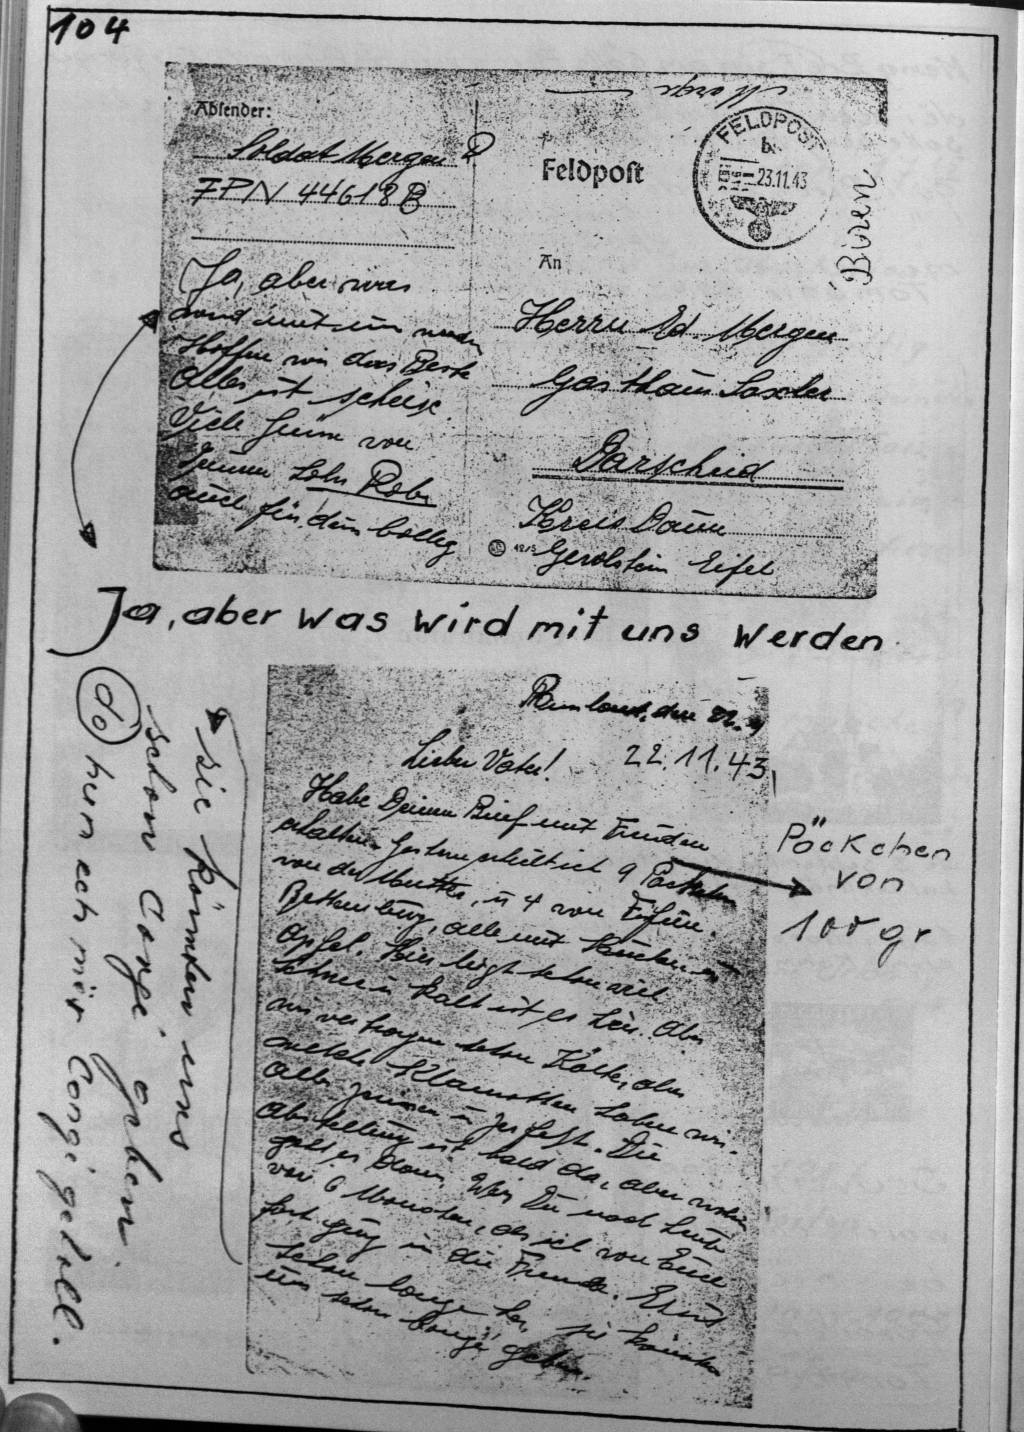 104
Morgen
Absender:
Soldat Mergen R
FPN 44618 B
Feldpost
FELDPOST
b
23.11.43
Büren
An
Herrn Ed. Mergen
Gasthaus Saxler
Darscheid
Kreis Daun
Gerolstein Eifel
Ja, aber was
wird mit uns werden
Hoffen wir das Beste
Alles ist scheise.
Viele Grüsse von
Deinem Sohn Rob.
auch für dein
Ja, aber was wird mit uns werden
den 22.
22.11.43
Lieber Vater!
Habe Deinen Brief mit Freuden
erhalten. Gestern erhielt ich 9 Päckchen
von der Mutter, u 4 von
alle mit Kuchen u
Äpfel. Hier liegt schon viel
Schnee u kalt ist es hier. Aber
wir vertragen schon Kälte, aber
welche Klamotten haben wir.
Alles zerissen u zerfetzt. Die
Abstellung ist bald da, aber wohin
geht es dann. Weis Du noch heute
vor 6 Monaten, als ich von Euch
fort ging in die Fremde.
schon lange her, sie könnten
uns schon Congé geben.
Päckchen
von
100 gr
sie könnten uns
schon Congé geben.
do hun ech mir Congé geholl.